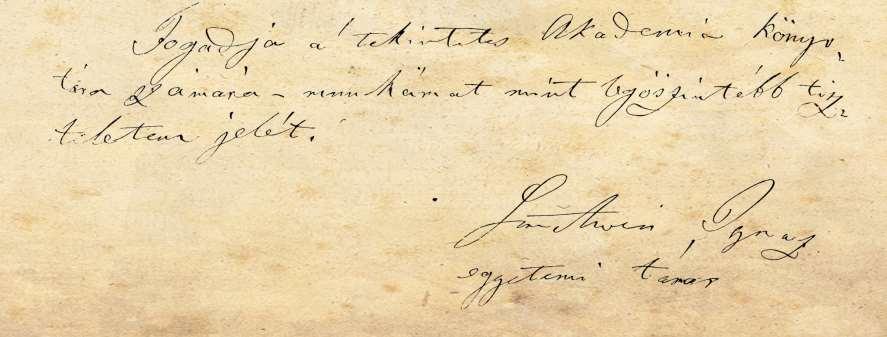 Fogadja a' tekintetes Akademia könyv-
tára számára – munkámat mint legőszintébb tisz-
teletem jelét.
Ignaz
egyetemi tanar